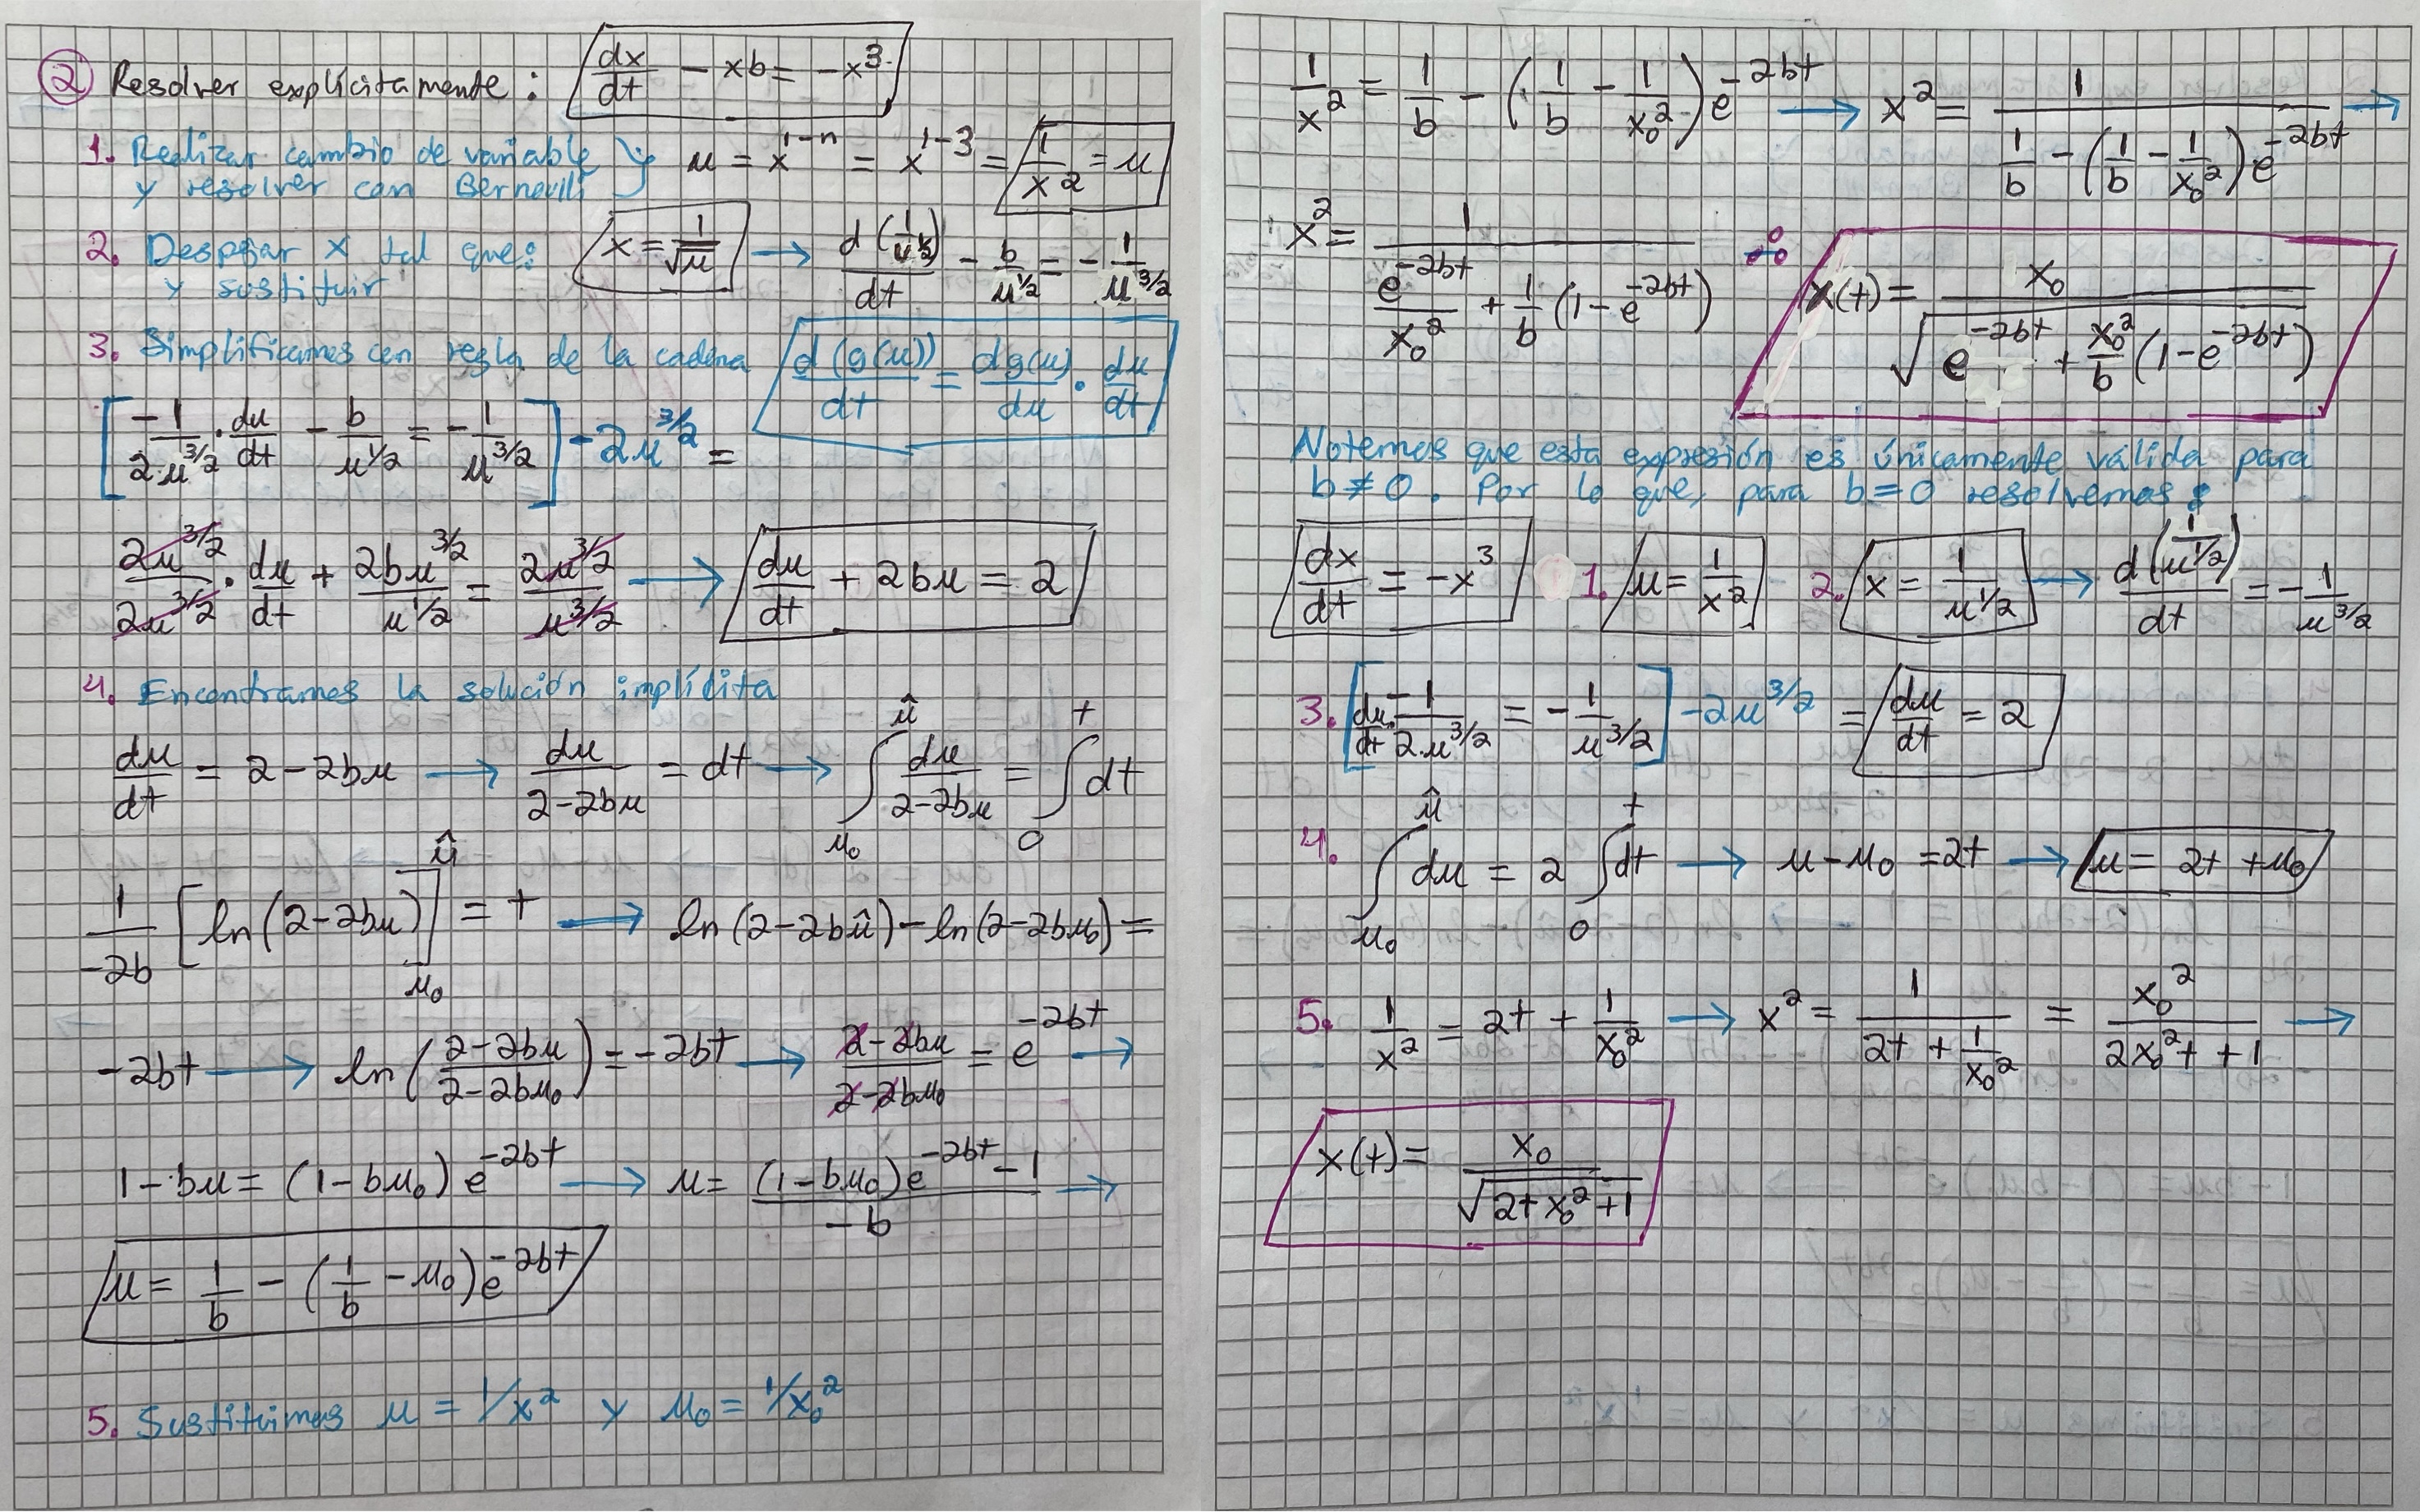 ② Resolver explícitamente: dx/dt - xb = -x³
1. Realizar cambio de variable
y resolver con Bernoulli } μ = x^(1-n) = x^(1-3) = 1/x² = μ
2. Despejar x tal que:
y sustituir x = 1/√μ → d(1/μ^(1/2))/dt - b/μ^(1/2) = -1/μ^(3/2)
3. Simplificamos con regla de la cadena d(g(μ))/dt = dg(μ)/dμ · dμ/dt
[-1/(2μ^(3/2)) · dμ/dt - b/μ^(1/2) = -1/μ^(3/2)] -2μ^(3/2) =
2μ^(3/2)/2μ^(3/2) · dμ/dt + 2bμ^(3/2)/μ^(1/2) = 2μ^(3/2)/μ^(3/2) → dμ/dt + 2bμ = 2
4. Encontramos la solución implídita
dμ/dt = 2 - 2bμ → dμ/(2-2bμ) = dt → ∫_μ₀^μ̂ dμ/(2-2bμ) = ∫_0^t dt
1/(-2b) [ln(2-2bμ)]_μ₀^μ̂ = t → ln(2-2bμ̂) - ln(2-2bμ₀) =
-2bt → ln((2-2bμ)/(2-2bμ₀)) = -2bt → (2-2bμ)/(2-2bμ₀) = e^(-2bt) →
1-bμ = (1-bμ₀)e^(-2bt) → μ = ((1-bμ₀)e^(-2bt) - 1)/(-b) →
μ = 1/b - (1/b - μ₀)e^(-2bt)
5. Sustituimos μ = 1/x² y μ₀ = 1/x₀²
1/x² = 1/b - (1/b - 1/x₀²)e^(-2bt) → x² = 1/(1/b - (1/b - 1/x₀²)e^(-2bt)) →
x² = 1/(e^(-2bt)/x₀² + 1/b (1-e^(-2bt))) ∴ x(t) = x₀/√(e^(-2bt) + x₀²/b (1-e^(-2bt)))
Notemos que esta expresión es únicamente válida para
b ≠ 0. Por lo que, para b = 0 resolvemos:
dx/dt = -x³ 1. μ = 1/x² 2. x = 1/μ^(1/2) → d(1/μ^(1/2))/dt = -1/μ^(3/2)
3. [dμ/dt · -1/(2μ^(3/2)) = -1/μ^(3/2)] -2μ^(3/2) = dμ/dt = 2
4. ∫_μ₀^μ̂ dμ = 2∫_0^t dt → μ - μ₀ = 2t → μ = 2t + μ₀
5. 1/x² = 2t + 1/x₀² → x² = 1/(2t + 1/x₀²) = x₀²/(2x₀²t + 1) →
x(t) = x₀/√(2t x₀² + 1)